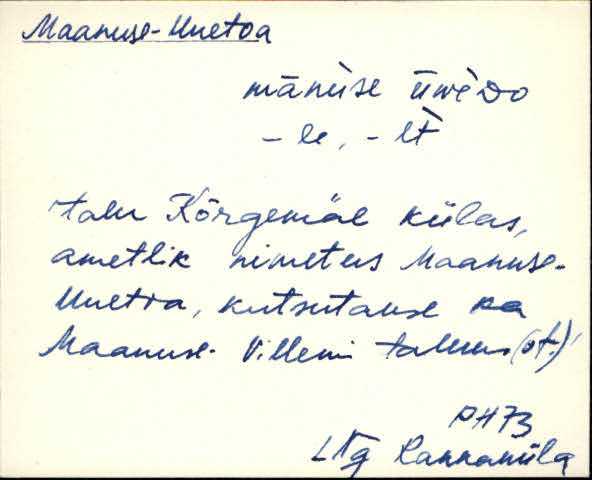 Maanuse-Uuetoa
mānùse ūwèDo
- le, - lt̀
talu Kõrgemäe külas,
ametlik nimetus Maanuse-
Uuetoa, kutsutakse ka
Maanuse-Villemi taluks (vt.)
PH73
LNg Rannaküla